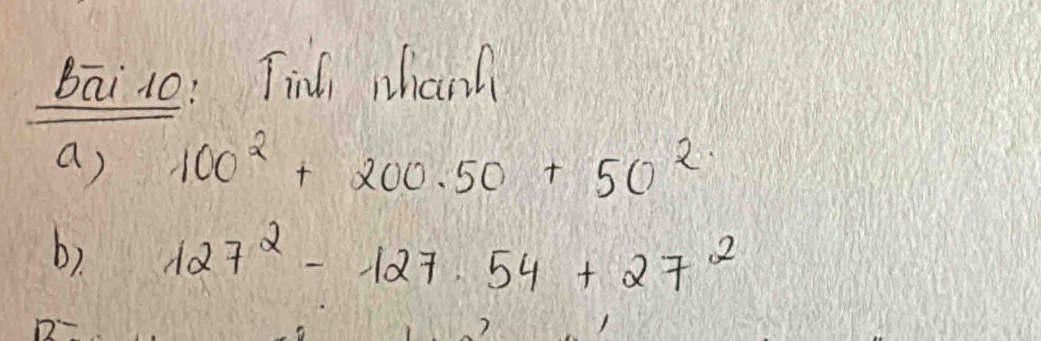 Bài 10: Tính nhanh
a) 100² + 200.50 + 50²
b) 127² - 127.54 + 27²